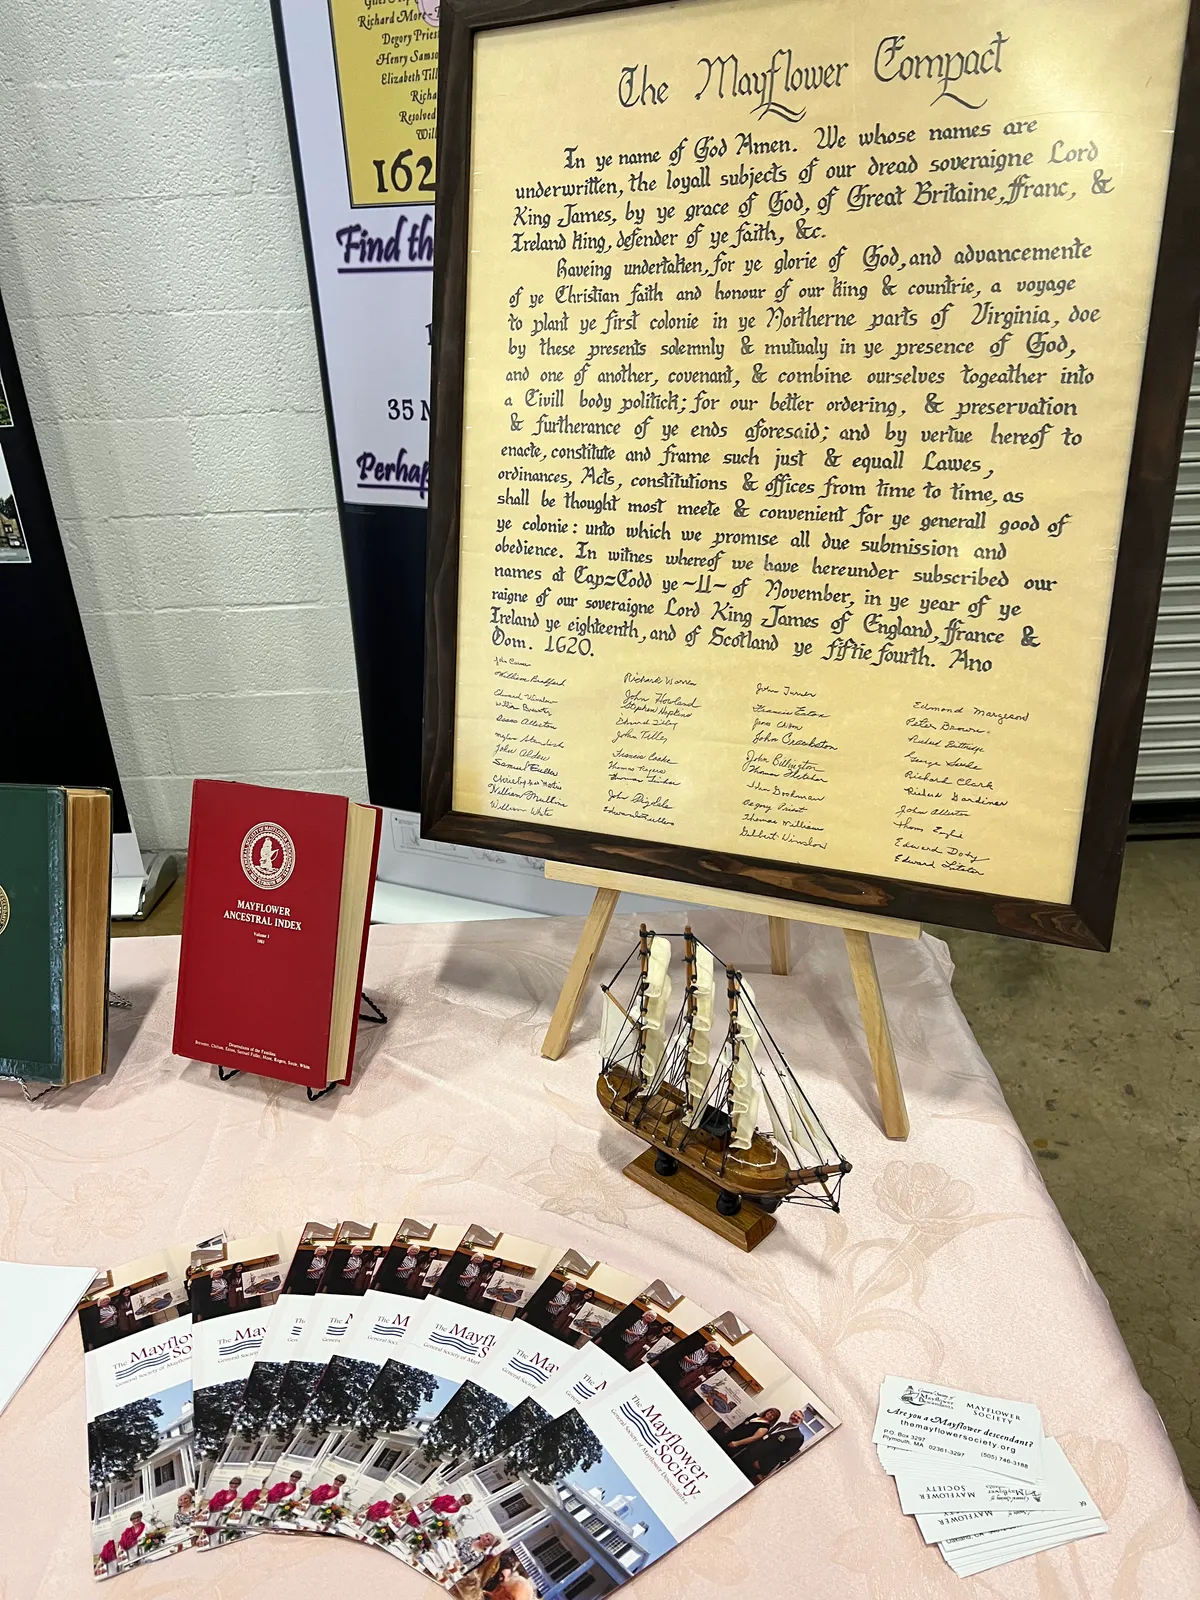 Richard More
Degory Pries
Henry Samso
Elizabeth Till
Richa
Resolved
Will
162
Find th
35 M
Perhap
The Mayflower Compact
In ye name of God Amen. We whose names are
underwritten, the loyall subjects of our dread soveraigne Lord
King James, by ye grace of God, of Great Britaine, ffranc, &
Ireland king, defender of ye faith, &c.
Haveing undertaken, for ye glorie of God, and advancemente
of ye Christian faith and honour of our king & countrie, a voyage
to plant ye first colonie in ye Northerne parts of Virginia, doe
by these presents solemnly & mutualy in ye presence of God,
and one of another, covenant, & combine ourselves togeather into
a Civill body politick; for our better ordering, & preservation
& furtherance of ye ends aforesaid; and by vertue hereof to
enacte, constitute and frame such just & equall Lawes,
ordinances, Acts, constitutions & offices from time to time, as
shall be thought most meete & convenient for ye generall good of
ye colonie: unto which we promise all due submission and
obedience. In witnes whereof we have hereunder subscribed our
names at Cap=Codd ye ~11~ of November, in ye year of ye
raigne of our soveraigne Lord King James of England, ffrance &
Ireland ye eighteenth, and of Scotland ye fiftie fourth. Ano
Dom. 1620.
John Carver
William Bradford
Edward Winslow
Isaac Allerton
John Alden
Samuel Fuller
William Mullins
William White
Richard Warren
John Howland
Stephen Hopkins
John Tilley
Francis Cooke
Thomas Rogers
Thomas Tinker
John Rigdale
John Turner
Francis Eaton
John Crackston
John Billington
Thomas Fletcher
John Goodman
Degory Priest
Thomas Williams
Gilbert Winslow
Edmond Margeson
Peter Brown
George Soule
Richard Clark
Richard Gardiner
John Allerton
Edward Doty
Edward Leister
MAYFLOWER
ANCESTRAL INDEX
Volume 1
1981
Descendants of the Families
The Mayflower
Society
General Society of Mayflower Descendants
General Society of
Mayflower
Descendants
MAYFLOWER
SOCIETY
Are you a Mayflower descendant?
themayflowersociety.org
P.O. Box 3297
Plymouth, MA 02361-3297
(505) 746-3188
MAYFLOWER
SOCIETY
MAYFLOWER